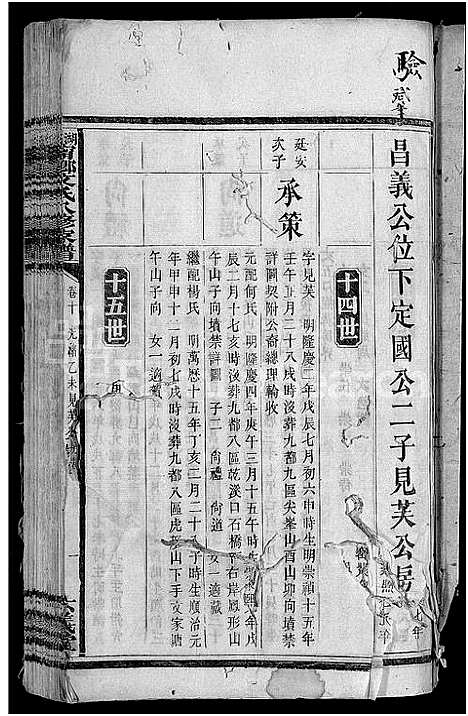 驗
昌義公位下定國公二子見芙公房
十四世
延安
次子
承策
字見芙 明隆慶二年戊辰七月初六申時生明崇禎十五年
壬午五月二十八戌時沒葬九都九區尖峯山酉山卯向墳禁
詳圖契附公裔總理輪收
元配何氏 明隆慶四年庚午三月十五午時生
辰二月十七亥時沒葬九都八區乾溪口石橋下右岸鳳形山
午山子向墳禁詳圖 子二 尙禮 尙道 女一 適戴
繼配楊氏 明萬歷十五年丁亥二月二十 時生順治元
年甲申十二月初七戌時沒葬九都八區虎形山下手 家塘
午山子向 女一適
十五世
卷十 光緒乙未